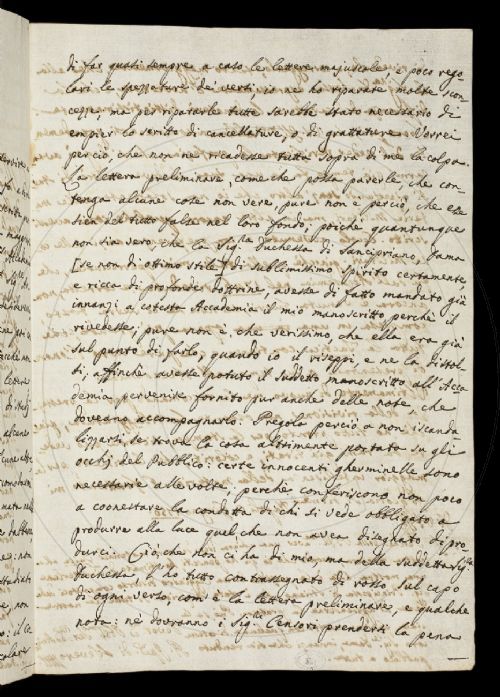 di far quasi sempre a caso le lettere majuscole, e poco rego
lari le spezzature de' versi; io ne ho riparate molte scon
cezze, ma per ripararle tutte sarebbe stato necessario di
empier lo scritto di cancellature, o di grattature. Vorrei
perciò, che non ne ricadesse tutta sopra di me la colpa.
La lettera preliminare, come che possa parerle, che con
tenga alcune cose non vere, pure non è perciò, che esse
sien del tutto false nel loro fondo; poiche quantunque
non sia vero, che la Sig.ra Duchessa di Sancipriano, Dama
[se non di ottimo stile] di sublimissimo spirito certamente,
e ricca di profonde dottrine, avesse di fatto mandato già
innanzi a cotesta Accademia il mio manoscritto perchè il
rivedesse; pure non è, che verissimo, che ella era già
sul punto di farlo, quando io il riseppi, e ne la distol
si, affinchè avesse potuto il suddetto manoscritto all'Acca
demia pervenire fornito pur anche delle note, che
doveano accompagnarlo. Pregola perciò a non iscanda
lizzarsi, se trova la cosa altrimente portata su gli
occhj del Pubblico: certe innocenti gherminelle sono
necessarie alle volte; perchè conferiscono non poco
a coonestare la condotta di chi si vede obbligato a
produrre alla luce quel, che non avea disegnato di pro
durci. Ciò, che non ci ha di mio, ma della suddetta Sig.ra
Duchessa, l'ho tutto contrassegnato di rosso sul capo
di ogni verso, com'è la lettera preliminare, e qualche
nota: ne dovranno i Sig.ri Censori prendersi la pena